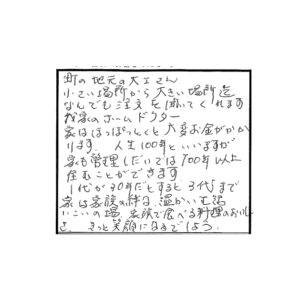 町の地元の大工さん
小さい場所から大きい場所迄
なんでも注文を聞いてくれます
我家のホームドクター
家はほっぽっとくと大変お金がかか
ります。 人生100年といいますが
家も管理しだいでは100年以上
住むことができます
1代が30年だとすると3代まで
家は家族の絆、温かい生活
いこいの場、家族で食べる料理のおいし
さ、きっと笑顔になるでしょう。